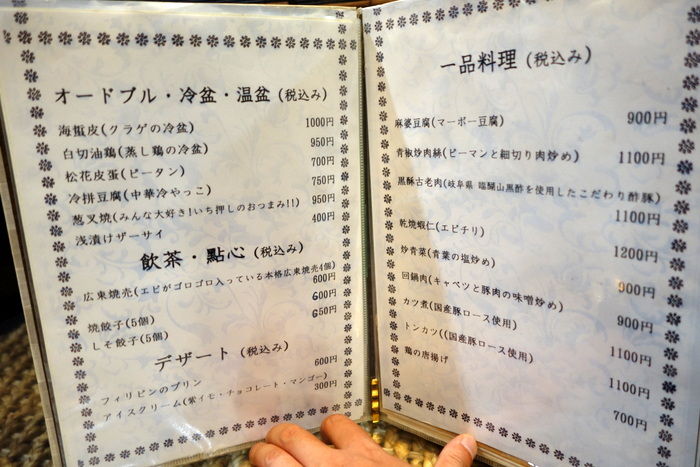 オードブル・冷盆・温盆(税込み)
海蜇皮(クラゲの冷盆) 1000円
白切油鶏(蒸し鶏の冷盆) 950円
松花皮蛋(ピータン) 700円
冷拼豆腐(中華冷やっこ) 750円
葱叉焼(みんな大好き!いち押しのおつまみ!!) 950円
浅漬けザーサイ 400円
飲茶・點心(税込み)
広東焼売(エビがゴロゴロ入っている本格広東焼売4個)
600円
焼餃子(5個) 600円
しそ餃子(5個) 650円
デザート(税込み)
フィリピンのプリン 600円
アイスクリーム(紫イモ・チョコレート・マンゴー) 300円
一品料理(税込み)
麻婆豆腐(マーボー豆腐) 900円
青椒炒肉絲(ピーマンと細切り肉炒め) 1100円
黒酥古老肉(岐阜県 臨醐山黒酢を使用したこだわり酢豚)
1100円
乾焼蝦仁(エビチリ) 1200円
炒青菜(青菜の塩炒め) 900円
回鍋肉(キャベツと豚肉の味噌炒め) 900円
カツ煮(国産豚ロース使用) 1100円
トンカツ((国産豚ロース使用) 1100円
鶏の唐揚げ 700円